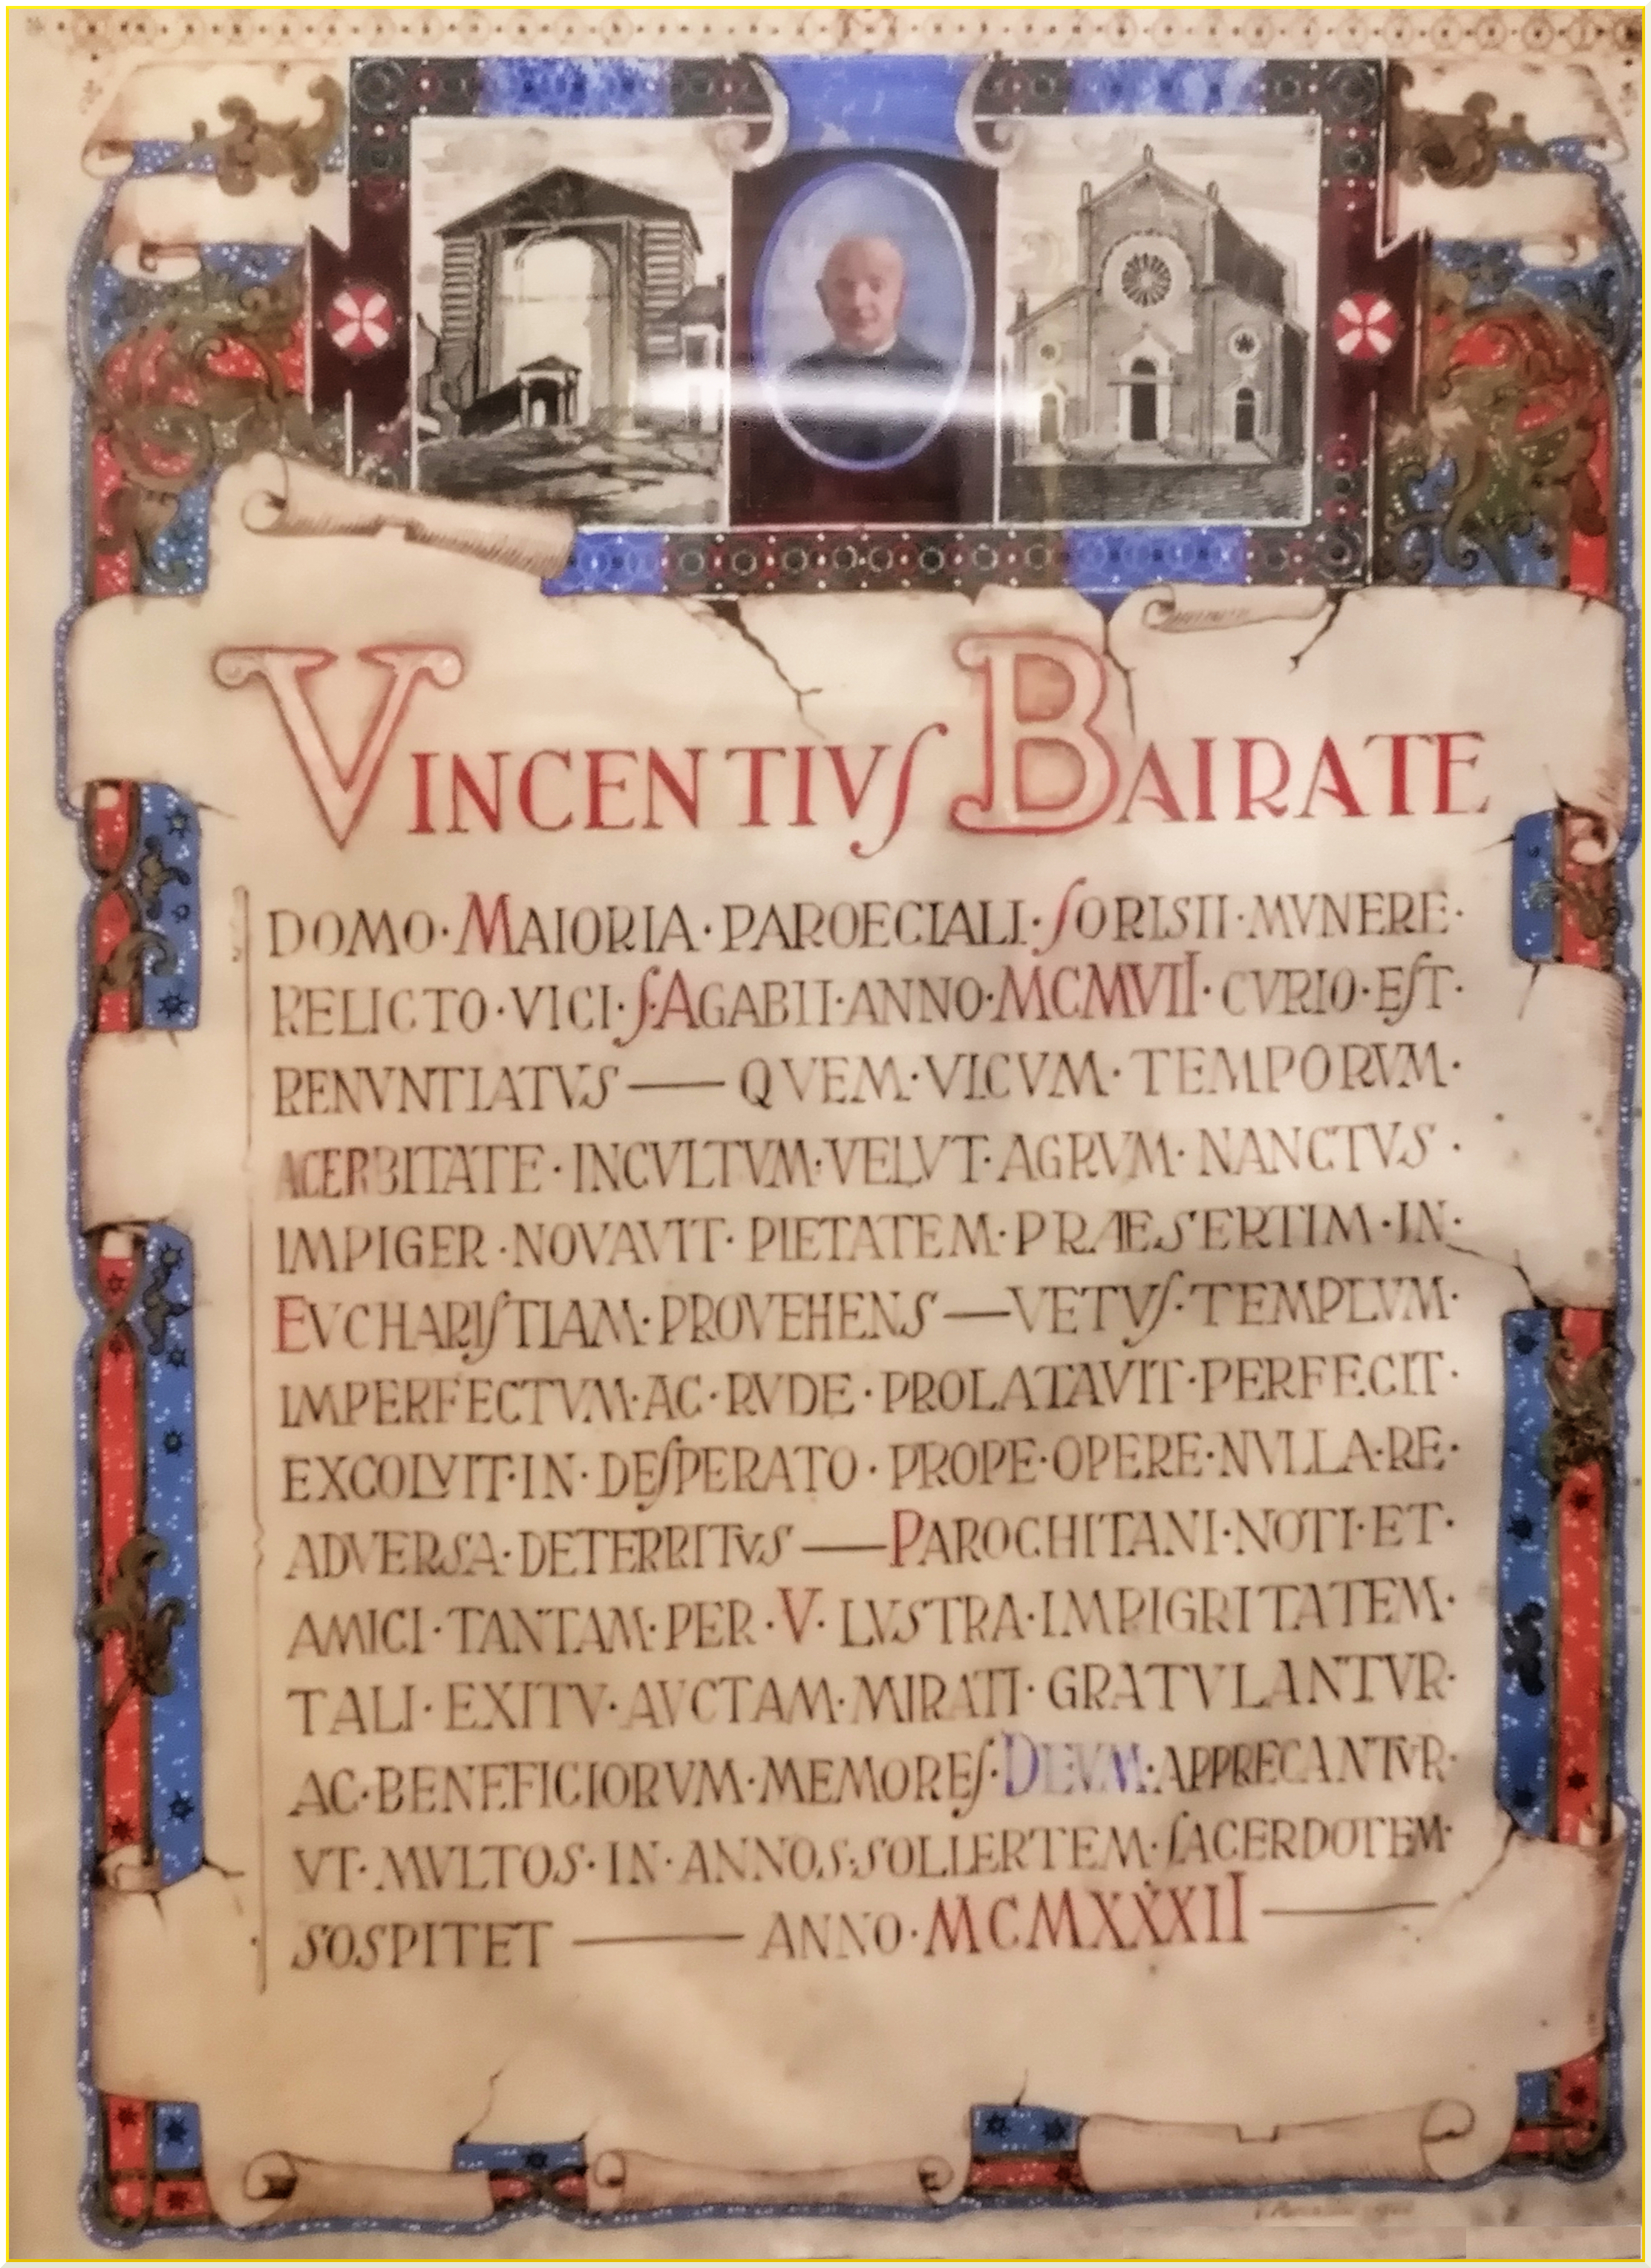 VINCENTIVS BAIRATE
DOMO · MAIORIA · PAROECIALI · SORISII · MVNERE ·
RELICTO · VICI · S · AGABII · ANNO · MCMVII · CVRIO · EST ·
RENVNTIATVS — QVEM · VICVM · TEMPORVM ·
ACERBITATE · INCVLTVM · VELVT · AGRVM · NANCTVS ·
IMPIGER · NOVAVIT · PIETATEM · PRÆSERTIM · IN ·
EVCHARISTIAM · PROVEHENS — VETVS · TEMPLVM ·
IMPERFECTVM · AC · RVDE · PROLATAVIT · PERFECIT ·
EXCOLVIT · IN · DESPERATO · PROPE · OPERE · NVLLA · RE ·
ADVERSA · DETERRITVS — PAROCHITANI · NOTI · ET ·
AMICI · TANTAM · PER · V · LVSTRA · IMPIGRITATEM ·
TALI · EXITV · AVCTAM · MIRATI · GRATVLANTVR ·
AC · BENEFICIORVM · MEMORES · DEVM · APPRECANTVR ·
VT · MVLTOS · IN · ANNOS · SOLLERTEM · SACERDOTEM ·
SOSPITET — ANNO · MCMXXXII —